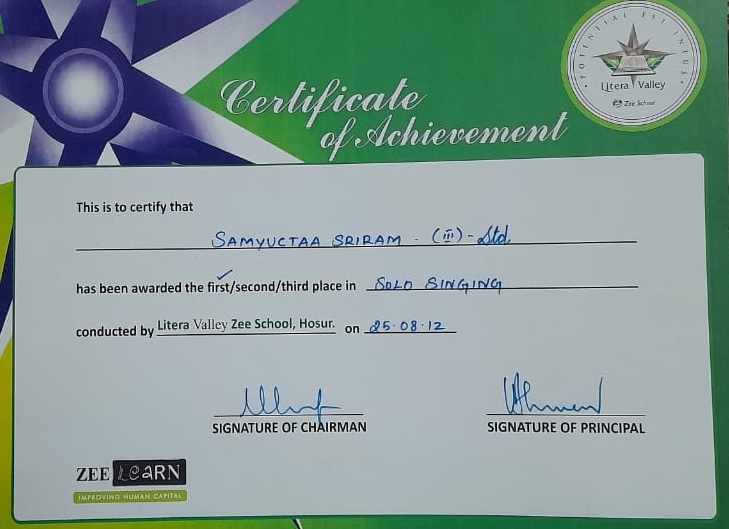 POTENTIAL EST INTUS
Litera Valley
Zee School
Certificate
of Achievement
This is to certify that
SAMYUCTAA SRIRAM - (III) - Std
has been awarded the first/second/third place in SOLO SINGING
conducted by Litera Valley Zee School, Hosur. on 25.08.12
SIGNATURE OF CHAIRMAN SIGNATURE OF PRINCIPAL
ZEE LeaRN
IMPROVING HUMAN CAPITAL